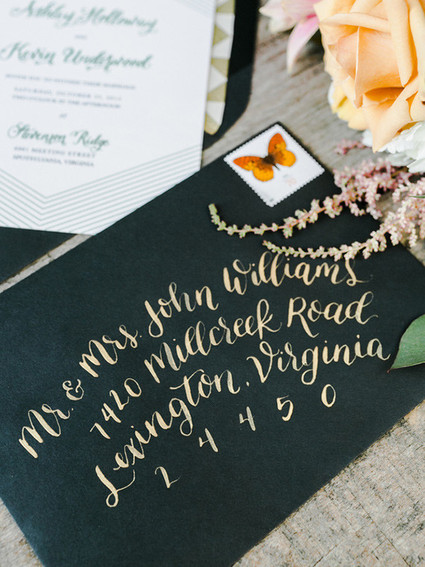 Ashley Holloway
AND
Kevin Underwood
Stevenson Ridge
SPOTSYLVANIA, VIRGINIA
Mr. & Mrs. John Williams
7420 Millcreek Road
Lexington, Virginia
24450